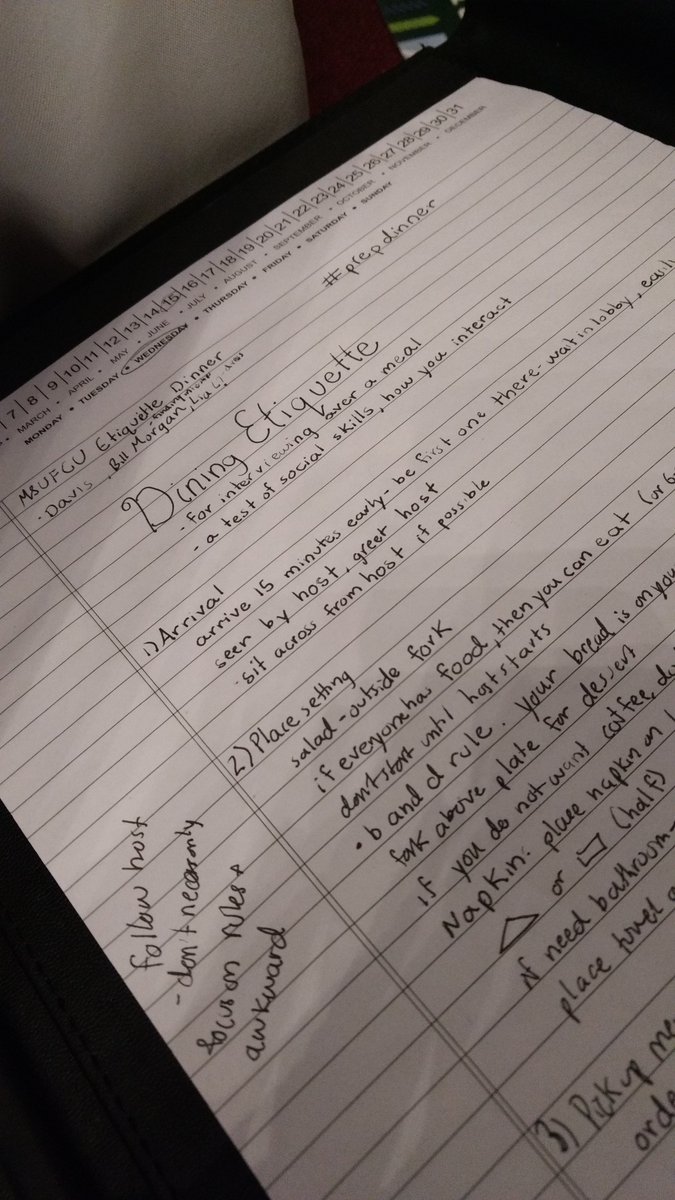 7|8|9|10|11|12|13|14|15|16|17|18|19|20|21|22|23|24|25|26|27|28|29|30|31
• MARCH • APRIL • MAY • JUNE • JULY • AUGUST • SEPTEMBER • OCTOBER • NOVEMBER • DECEMBER
MONDAY • TUESDAY • WEDNESDAY • THURSDAY • FRIDAY • SATURDAY • SUNDAY
#prepdinner
MSUFCU Etiquette Dinner
Davis, Bill Morgan
Dining Etiquette
- For interviewing over a meal
- a test of social skills, how you interact
1) Arrival
arrive 15 minutes early - be first one there - wait in lobby,
seen by host, greet host
- sit across from host if possible
2) Place setting
salad - outside fork
if everyone has food, then you can eat (or
don't start until host starts
• b and d rule. Your bread is on
fork above plate for dessert
if you do not want coffee,
Napkin: place napkin on
or (half)
if need bathroom
place
3) Pick up
follow host
- don't necessarily
focus on rules +
awkward